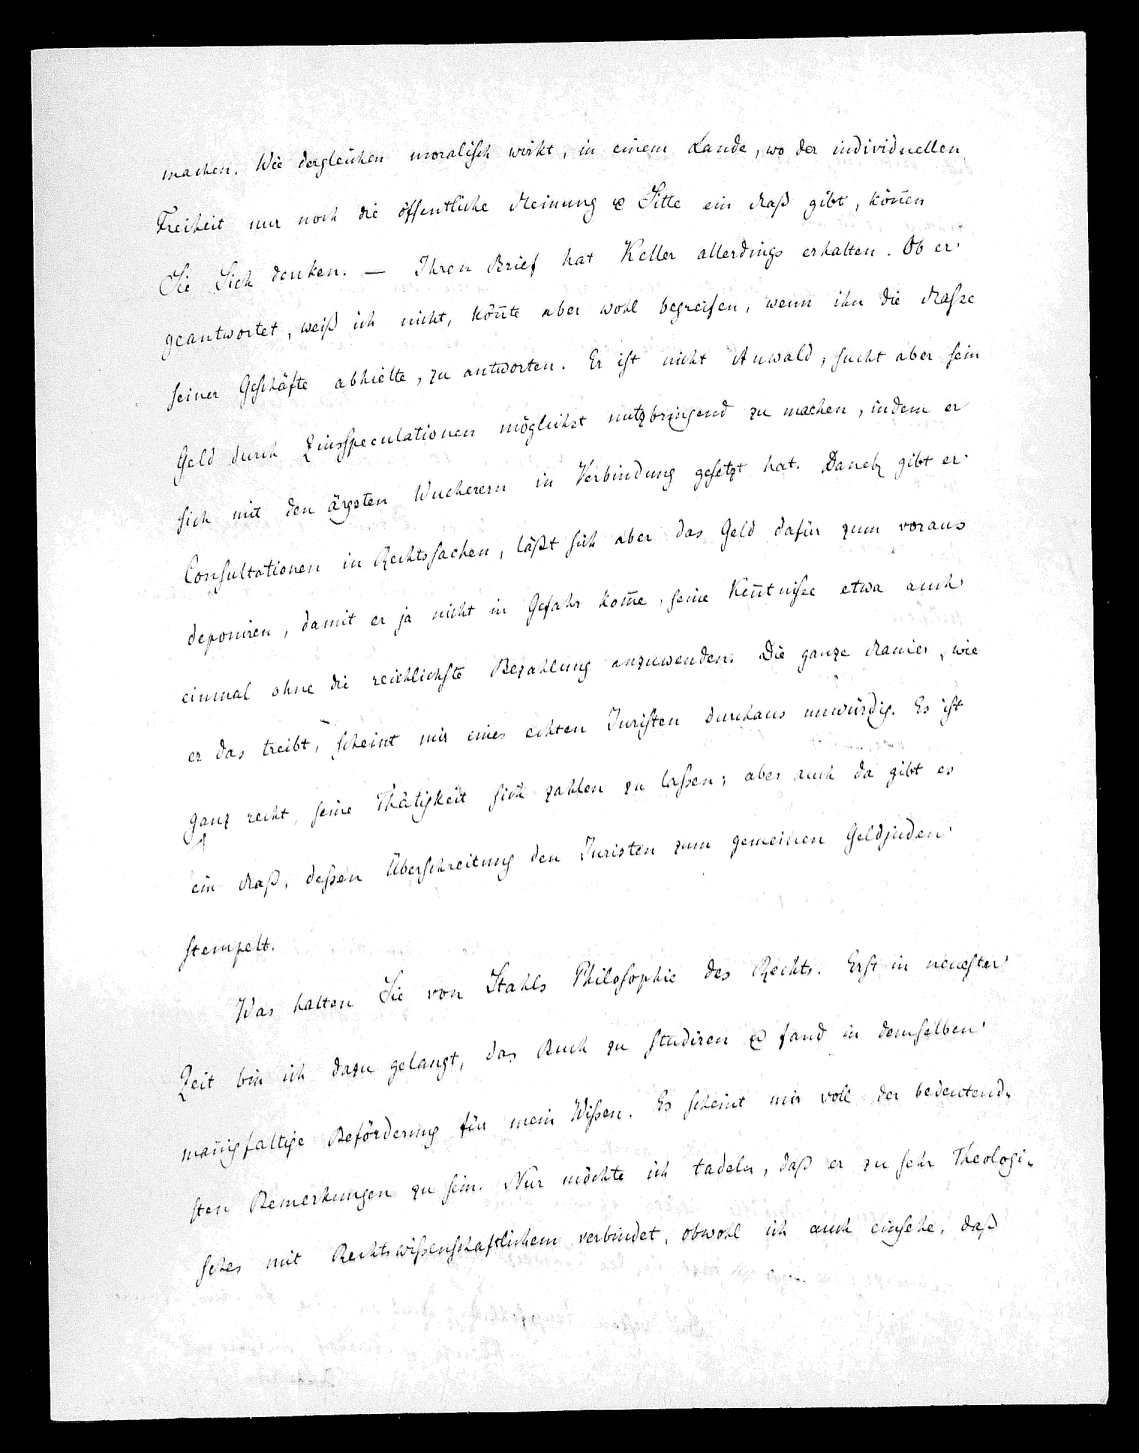 machen. Wie dergleichen moralisch wirkt, in einem Lande, wo der individuellen
Freiheit nur noch die öffentliche Meinung & Sitte ein Maß gibt, kön̄en
Sie Sich denken. — Ihren Brief hat Keller allerdings erhalten. Ob er
geantwortet, weiß ich nicht, kön̄te aber wohl begreifen, wenn ihn die Maße
seiner Geschäfte abhielte, zu antworten. Er ist nicht Anwald, sucht aber sein
Geld durch Zinsspeculationen möglichst nutzbringend zu machen, indem er
sich mit den ärgsten Wucherern in Verbindung gesetzt hat. Daneb. gibt er
Consultationen in Rechtssachen, läßt sich aber das Geld dafür zum voraus
deponiren, damit er ja nicht in Gefahr kom̄e, seine Ken̄tniße etwa auch
einmal ohne die reichlichste Bezahlung anzuwenden. Die ganze Manier, wie
er das treibt, scheint mir eines echten Juristen durchaus unwürdig. Es ist
ganz recht, seine Thätigkeit sich zahlen zu laßen; aber auch da gibt es
ein Maß, deßen Überschreitung den Juristen zum gemeinen Geldjuden
stempelt.
Was halten Sie von Stahls Philosophie des Rechts. Erst in neuester
Zeit bin ich dazu gelangt, das Buch zu studiren & fand in demselben
man̄igfaltige Beförderung für mein Wißen. Es scheint mir voll der bedeutend-
sten Bemerkungen zu sein. Nur möchte ich tadeln, daß er zu sehr Theologi-
sches mit Rechtswißenschaftlichem verbindet, obwohl ich auch einsehe, daß